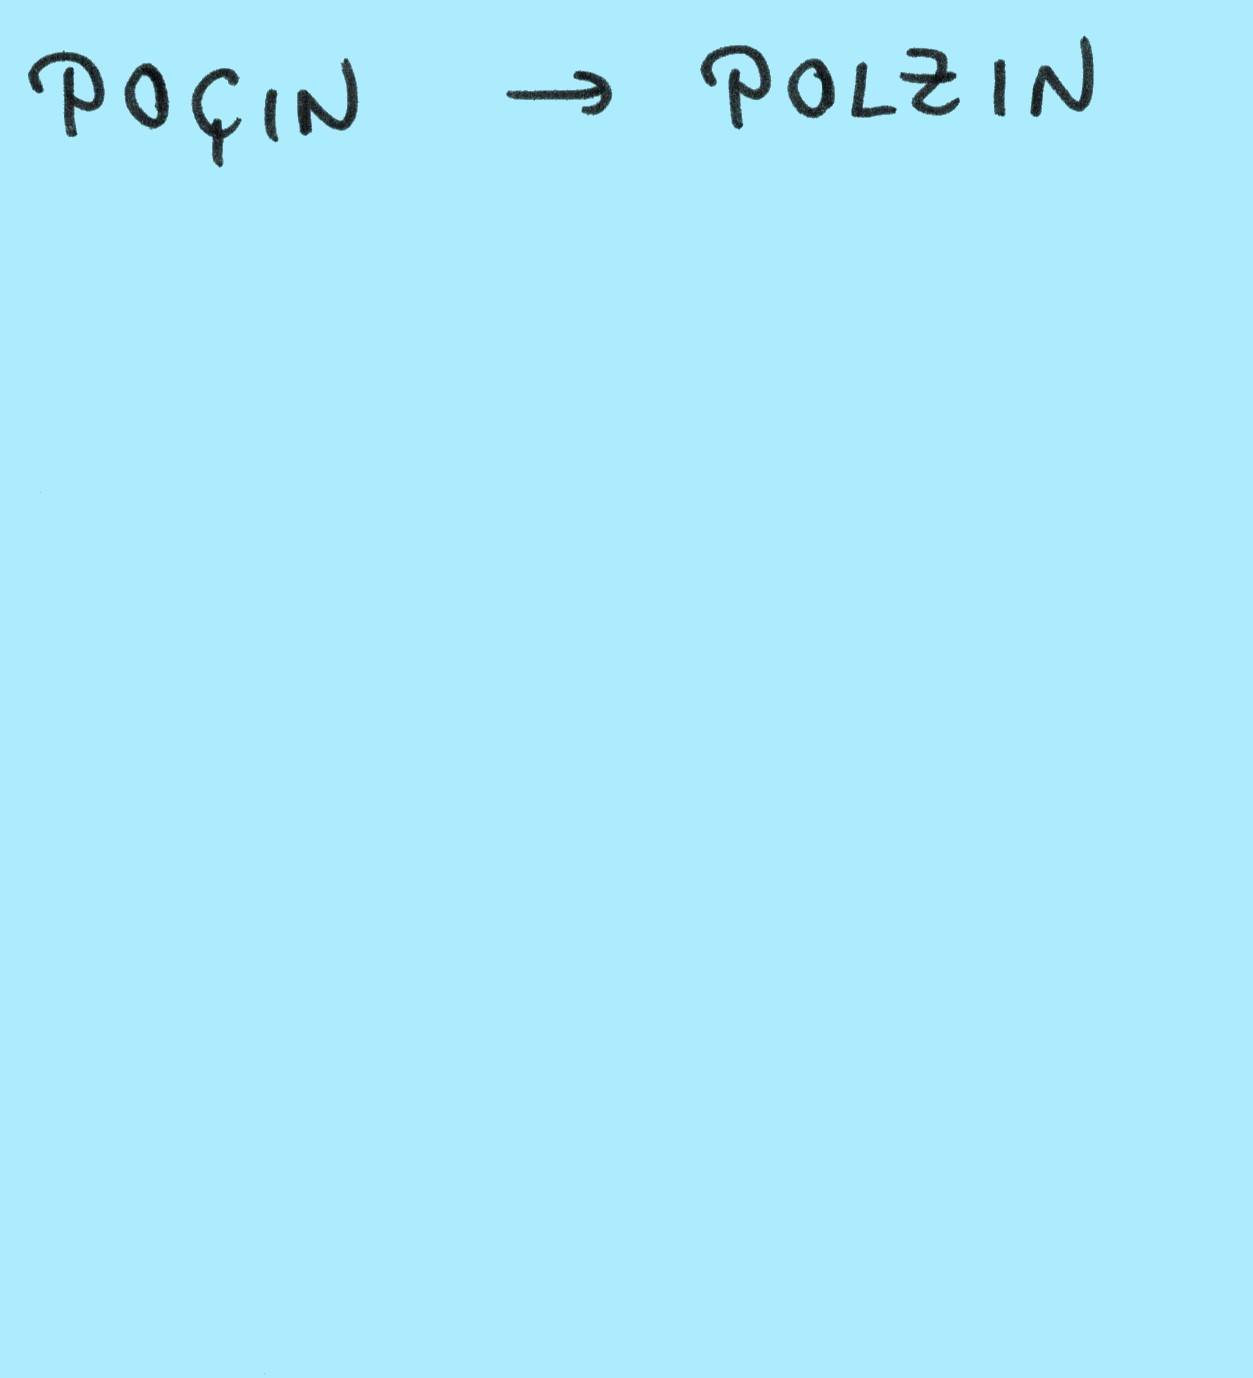 POÇIN → POLZIN